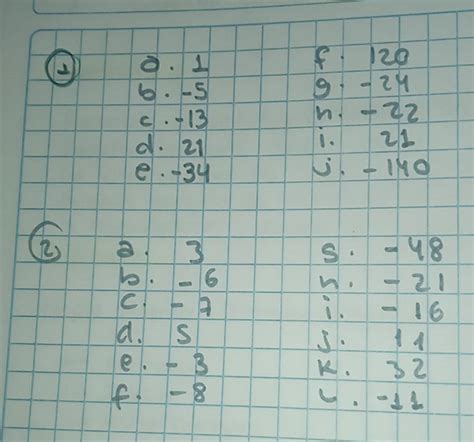 1
a. 1
b. -5
c. -13
d. 21
e. -34
f. 120
g. -24
h. -22
i. 21
j. -140
2
a. 3
b. -6
c. -7
d. 5
e. -3
f. -8
g. -48
h. -21
i. -16
j. 11
k. 32
l. -11